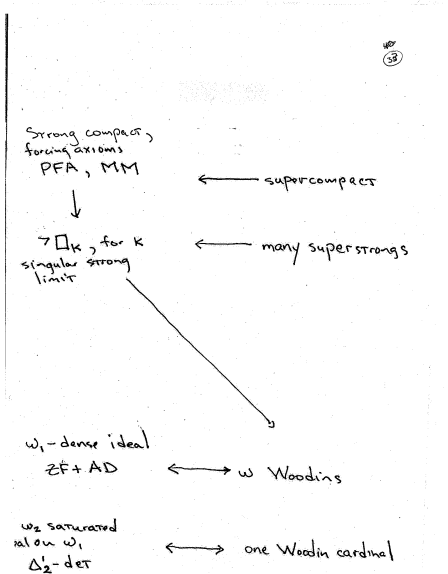 40
38
Strong compact,
forcing axioms
PFA, MM ← supercompact
↓
¬□κ, for κ ← many superstrongs
singular strong
limit
ω₁-dense ideal
ZF + AD ↔ ω Woodins
ω₂ saturated
al on ω₁
Δ¹₂-det ↔ one Woodin cardinal